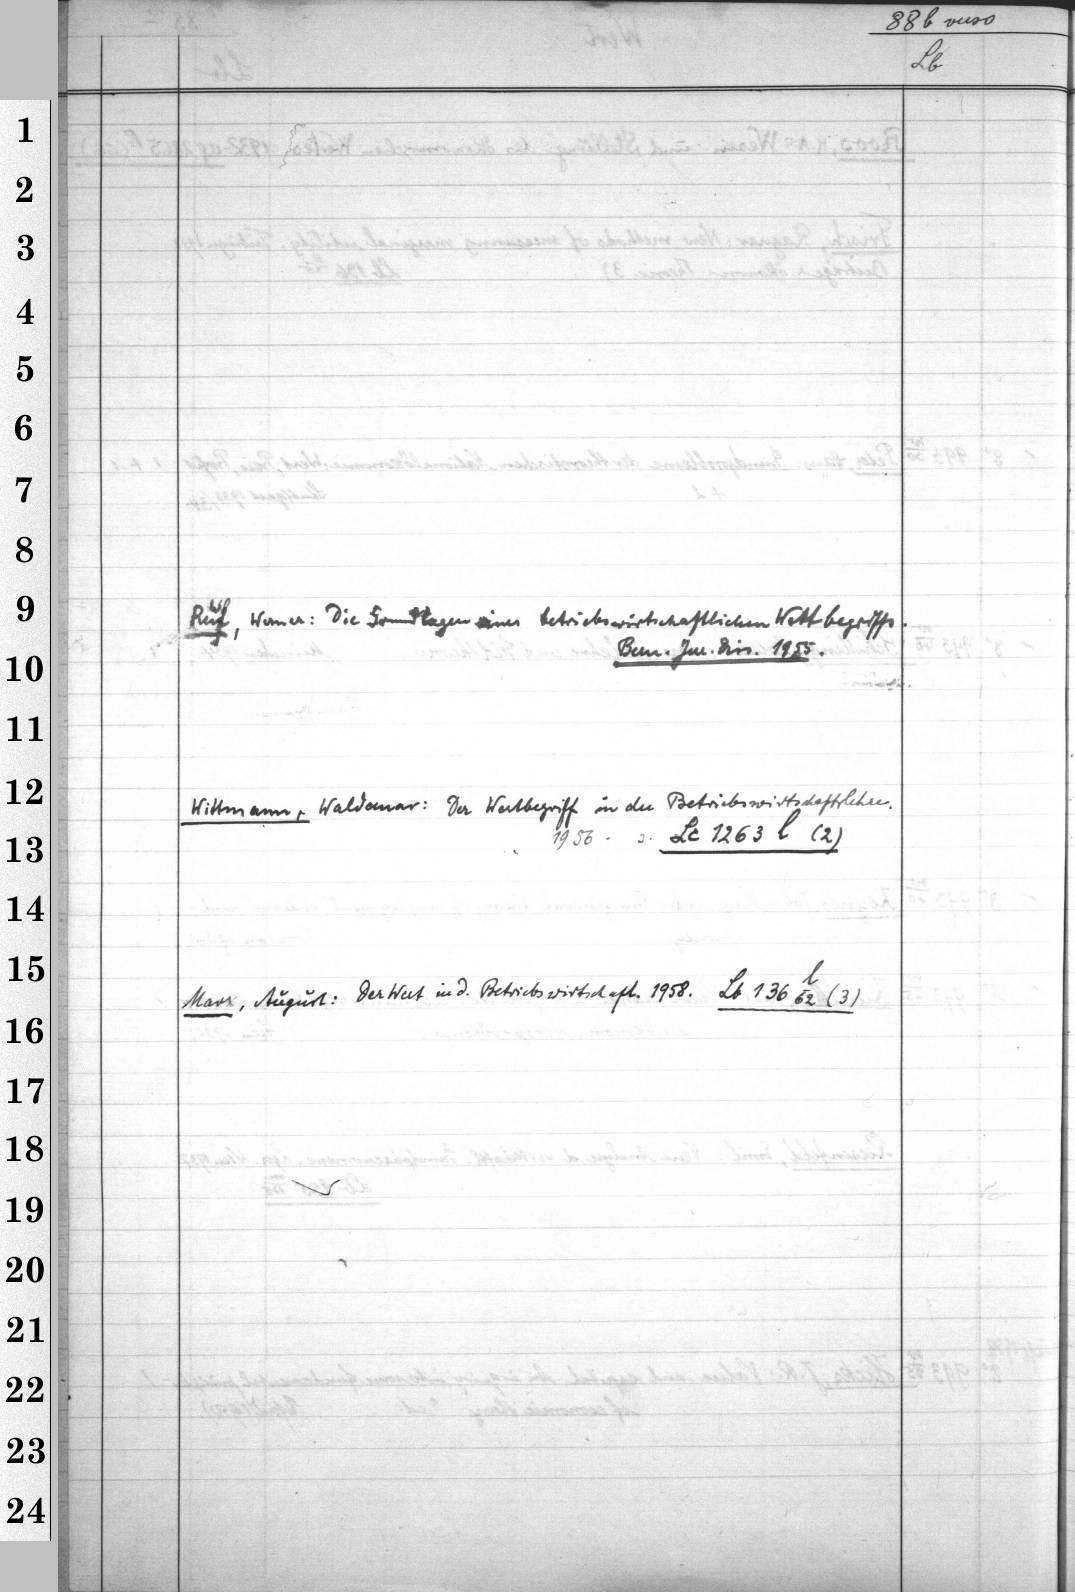 88b verso
Lb
1
2
3
4
5
6
7
8
9
Ruf, Werner: Die Grundlagen eines betriebswirtschaftlichen Wertbegriffs.
10
Bern. Jur. Diss. 1955.
11
12
Wittmann, Waldemar: Der Wertbegriff in der Betriebswirtschaftslehre.
13
1956 - s. Lc 1263 l (2)
14
15
Marx, August: Der Wert in d. Betriebswirtschaft. 1958. Lb 136 l/52 (3)
16
17
18
19
20
21
22
23
24